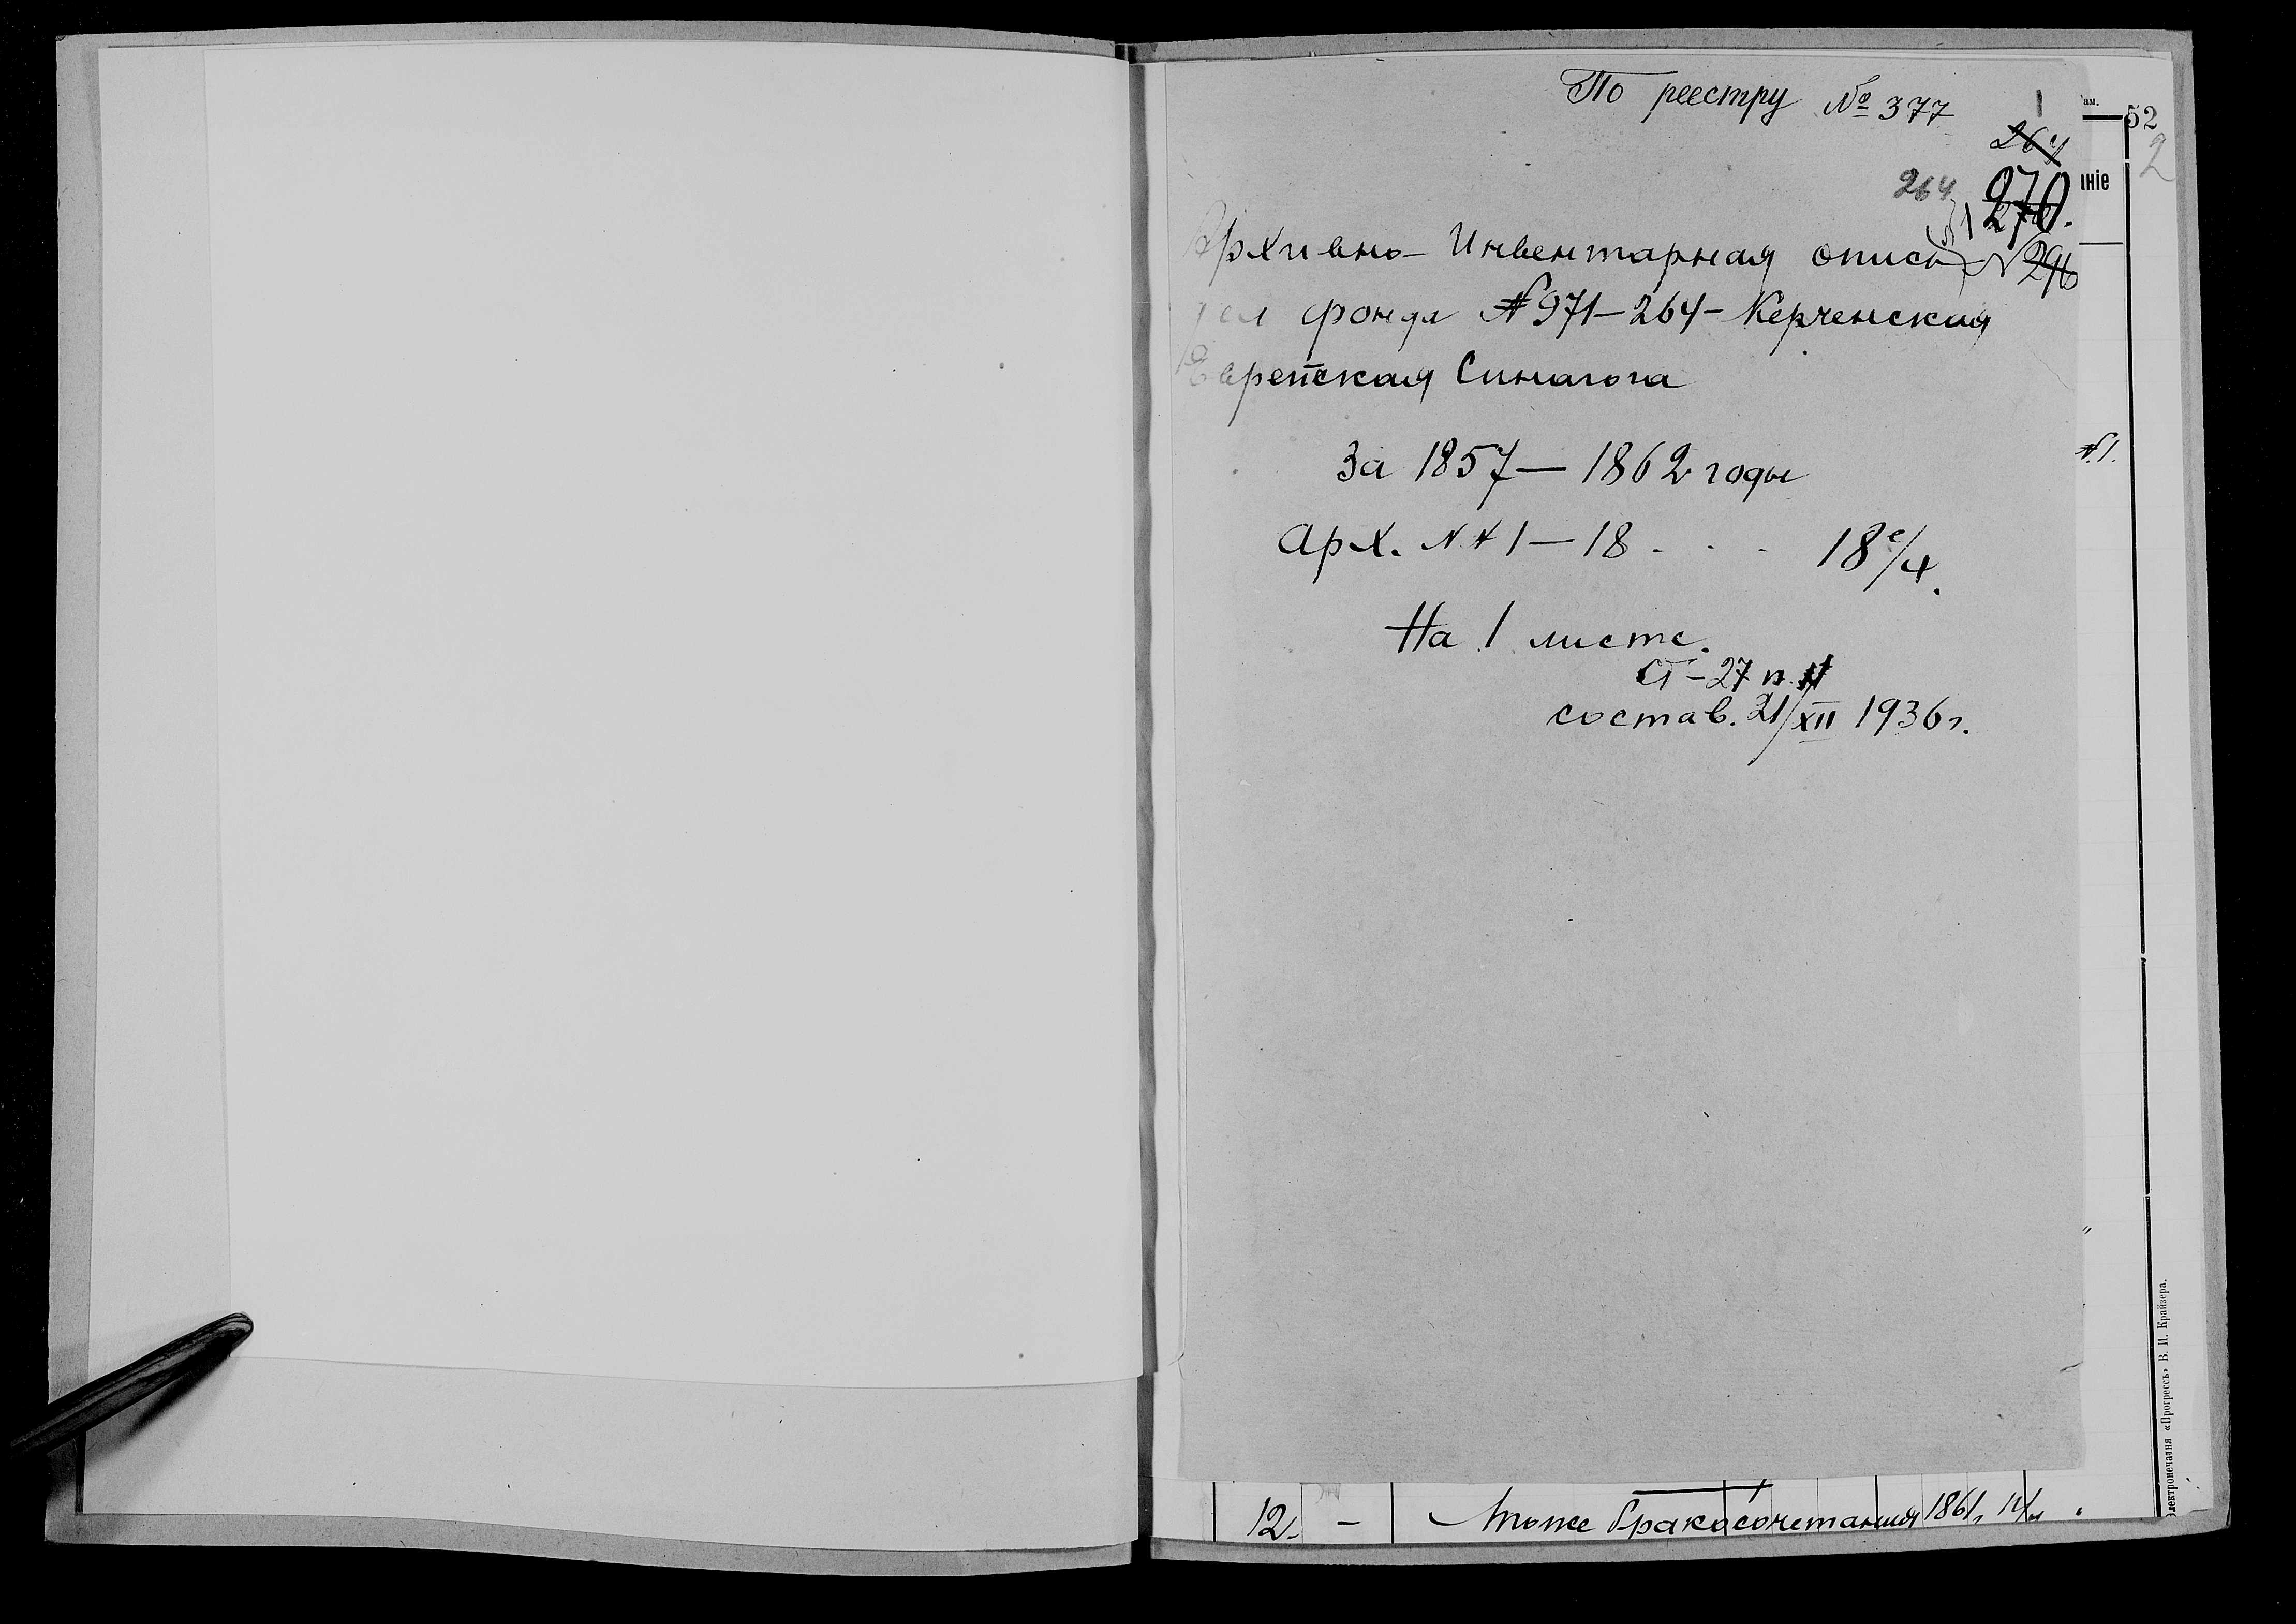 По реестру № 377
1
264
264
270.
Архивно-Инвентарная опись № 296
дел фонда № 971-264-Керченская
Еврейская Синагога
За 1857—1862 годы
Арх. № № 1—18 . . . 18 е/х.
На 1 листе.
состав. 21/XII 1936 г.
ам.
52
2
ніе
№ 1.
"
12. — Тоже бракосочетания 1861 г.
лектропечатня «Прогрессъ» В. П. Крайзера.